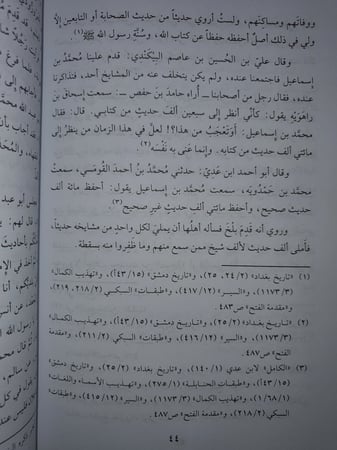 ووفاتَهم ومساكنَهم، ولستُ أروي حديثاً من حديث الصحابة أو التابعين إلّا
ولي في ذلك أصلٌ أحفظه حفظاً عن كتاب الله، وسُنَّةِ رسول الله ﷺ(١).
وقال عليُّ بن الحُسين بن عاصم البِيْكَندي: قدم علينا محمَّد بن
إسماعيل فاجتمعنا عنده، ولم يكن يتخلف عنه من المشايخ أحد، فتذاكرنا
عنده، فقال رجل من أصحابنا ـ أُراه حامدَ بنَ حفص ـ: سمعت إسحاق بن
راهَوَيْه يقول: كأنِّي أنظر إلى سبعين ألف حديثٍ من كتابي. قال: فقال
محمَّد بن إسماعيل: أوَتعْجَبُ من هذا؟! لعلَّ في هذا الزمان من ينظرُ إلى
مائتي ألف حديث من كتابه. وإنما عنى به نَفْسَه(٢).
وقال أبو أحمد ابن عَدِيّ: حدثني محمَّدُ بنُ أحمدَ القُومَسي، سمعت
محمَّد بن حَمْدُوْيَه، سمعت محمَّد بن إسماعيل يقول: أحفظ مائة ألف
حديث صحيح، وأحفظ مائتي ألف حديثٍ غيرِ صحيح(٣)
وروي أنه قَدِمَ بَلْخَ فسأله أهلُها أن يمليَ لكل واحدٍ من مشايخه حديثاً،
فأملى ألف حديث لألف شيخ ممن سمع منهم وما ظفِروا منه بسقطة.
(١) «تاريخ بغداد» (٢/ ٢٤، ٢٥)، و«تاريخ دمشق» (١٥/ ٤٣أ)، و«تهذيب الكمال»
(٣/ ١١٧٢)، و«السير» (١٢/ ٤١٧)، و«طبقات» السبكي (٢/ ٢١٨، ٢١٩)
و«مقدمة الفتح» ص٤٨٣.
(٢) «تاريخ بغداد» (٢/ ٢٥)، و«تاريخ دمشق» (١٥/ ٤٣أ)، و«تهذيب الكمال»
(٣/ ١١٧٣)، و«السير» (١٢/ ٤١٦)، و«طبقات» السبكي (٢/ ٢١١)، و«مقدمة
الفتح» ص٤٨٧.
(٣) «الكامل» لابن عدي (١/ ١٤٠)، و«تاريخ بغداد» (٢/ ٢٥)، و«تاريخ دمشق»
(١٥/ ٤٣أ)، و«طبقات الحنابلة» (١/ ٢٧٥)، و«تهذيب الأسماء واللغات»
(١/ ١/ ٦٨)، و«تهذيب الكمال» (٣/ ١١٧٣)، و«السير» (١٢/ ٤١٥)، و«طبقات»
السبكي (٢/ ٢١٨)، و«مقدمة الفتح» ص٤٨٧.
٤٤